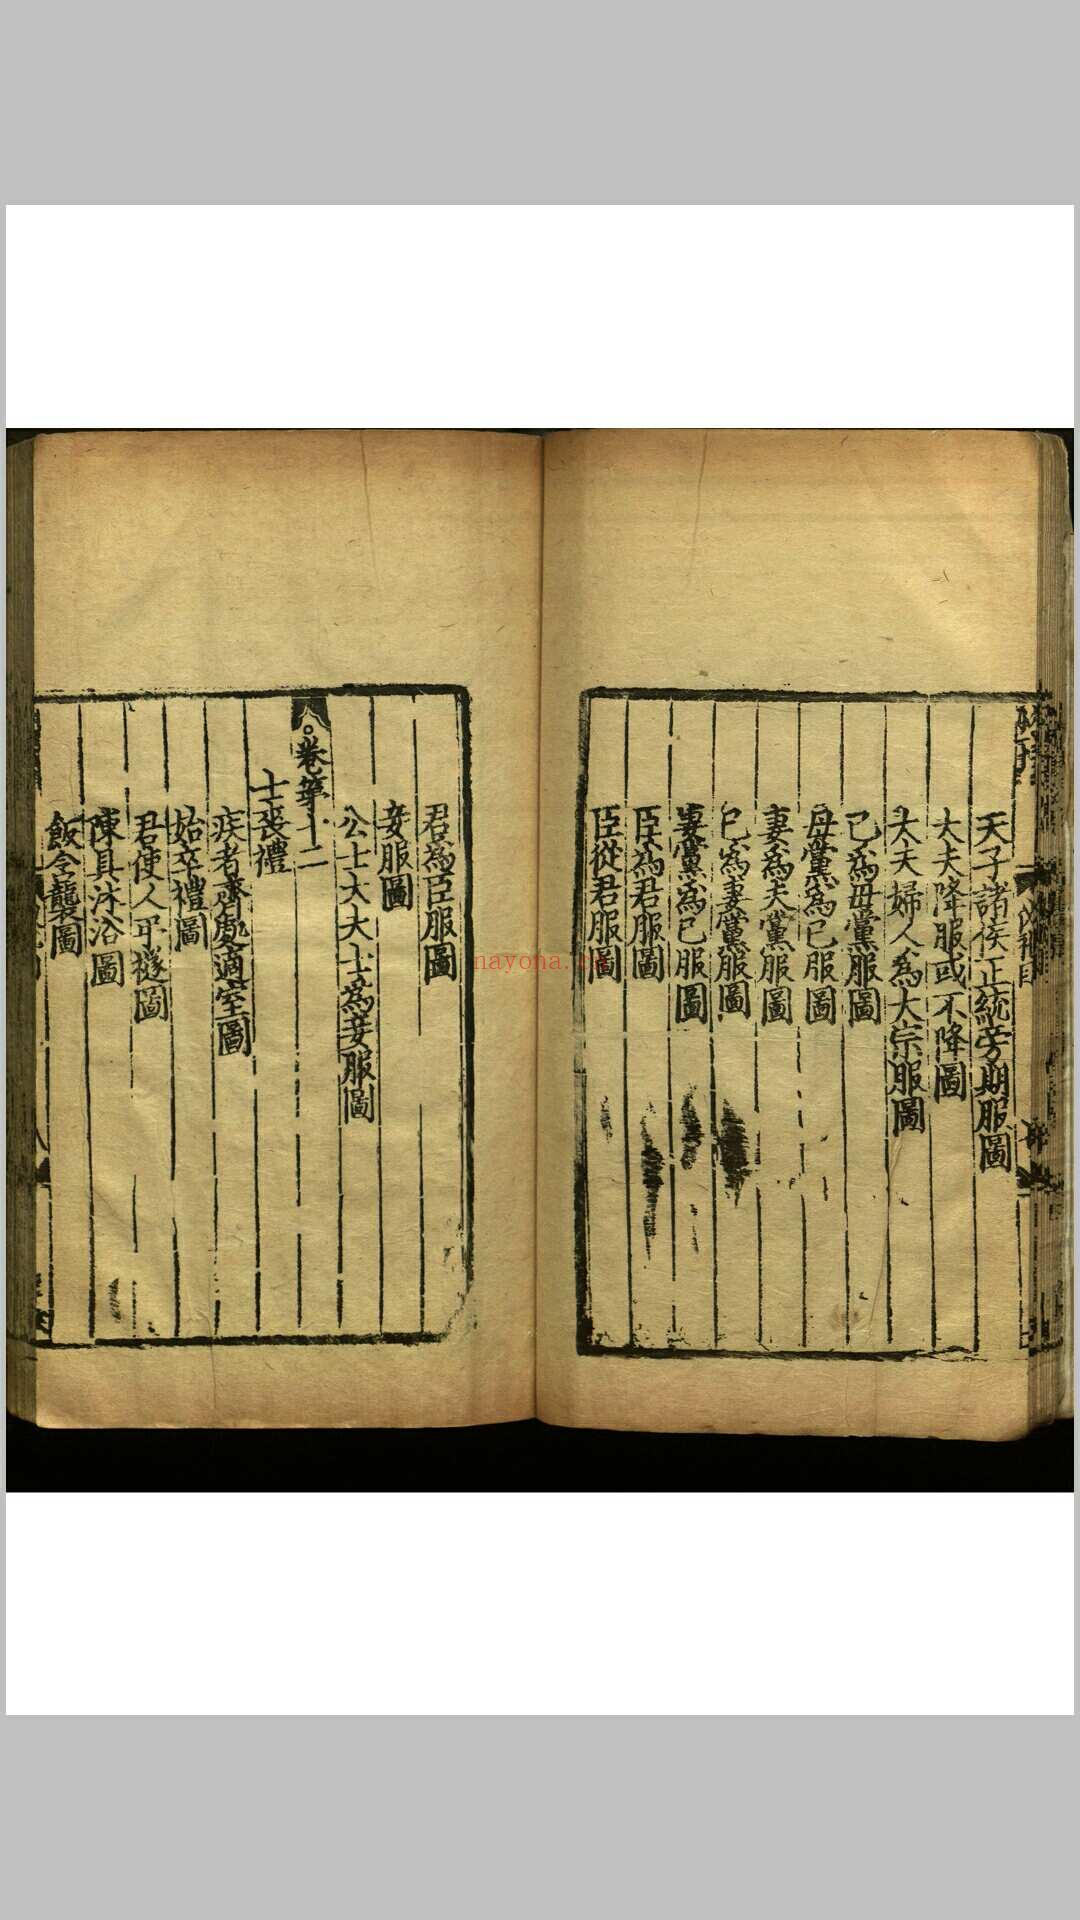 天子諸侯正統旁期服圖
大夫降服或不降圖
大夫婦人為大宗服圖
己為母黨服圖
母黨為己服圖
妻為夫黨服圖
己為妻黨服圖
妻黨為己服圖
臣為君服圖
臣從君服圖
君為臣服圖
妾服圖
公士大夫士為妾服圖
卷第十二
士喪禮
疾者齊處適室圖
始卒禮圖
君使人弔襚圖
陳具沐浴圖
飯含襲圖
nayona.cn